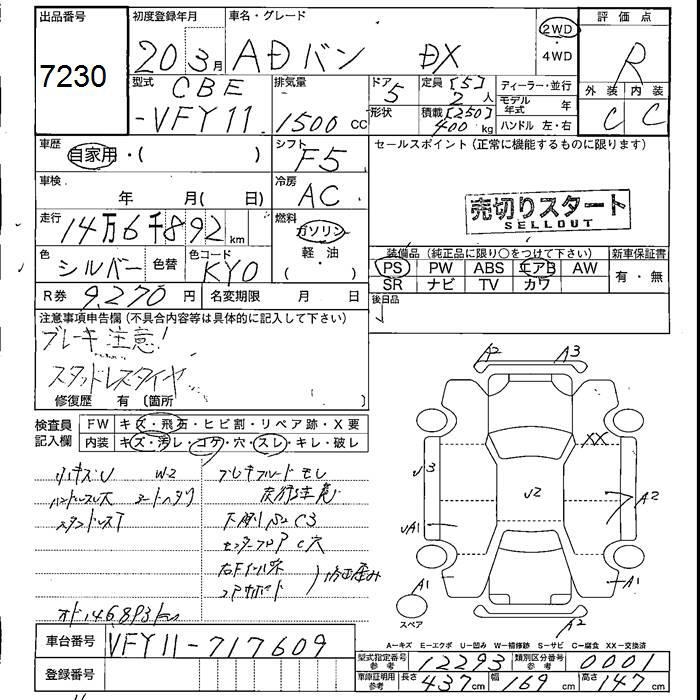 出品番号 初度登録年月 車名・グレード 2WD 評価点
7230 20 3月 ADバン DX ・4WD R
型式 CBE 排気量 ドア 定員 [5] ディーラー・並行 外装 内装
-VFY11 1500 CC 5 2人 モデル年式 年 C C
形状 積載 [250] 400 kg ハンドル 左・右
車歴 シフト セールスポイント(正常に機能するものに限ります)
自家用・( ) F5
車検 冷房
年 月( 日) AC 売切りスタート
SELLOUT
走行 燃料
14万6千892km ガソリン
軽・油
( ) 装備品(純正品に限り○をつけて下さい) 新車保証書
色 シルバー 色替 色コード KY0 PS PW ABS エアB AW 有・無
SR ナビ TV カワ
R券 9,270円 名変期限 月 日 後日品
注意事項申告欄(不具合内容等は具体的に記入して下さい)
ブレーキ注意!
スタッドレスタイヤ
修復歴 有〔箇所
A2 A3
検査員 FW キズ・飛石・ヒビ割・リペア跡・X要
記入欄 内装 キズ・汚レ・コゲ・穴・スレ・キレ・破レ
XX
小キズU W2 ブレーキフルードモレ
U3 U2 A2
シートヘタリ
下廻りサビC3
UA1
センターフロアC穴
A1 A1
スペア
オド146893km
A2
A-キズ E-エクボ U-凹み W-補修跡 S-サビ C-腐食 XX-交換済
車台番号 VFY11-717609
型式指定番号 参考 12293 類別区分番号 参考 0001
登録番号
車庫証明用 参考 長さ 437cm 幅 169cm 高さ 147cm